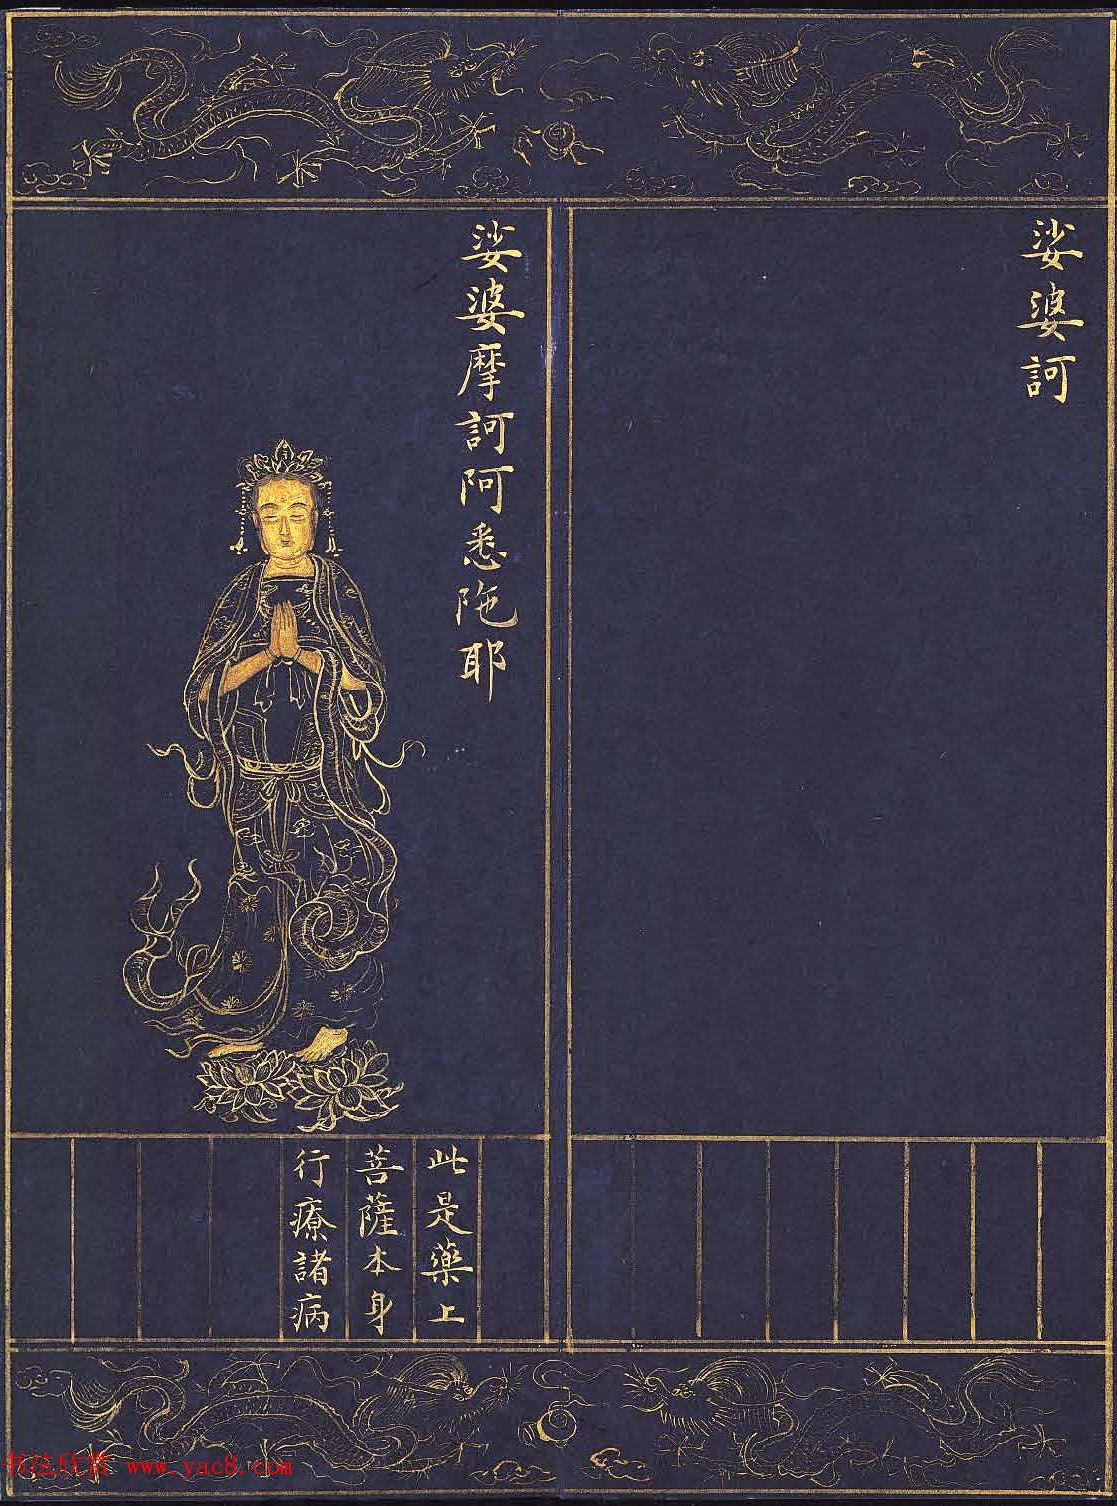 娑婆訶
娑婆摩訶阿悉陁耶
此是藥上
菩薩本身
行療諸病
书法欣赏 www.yac8.com